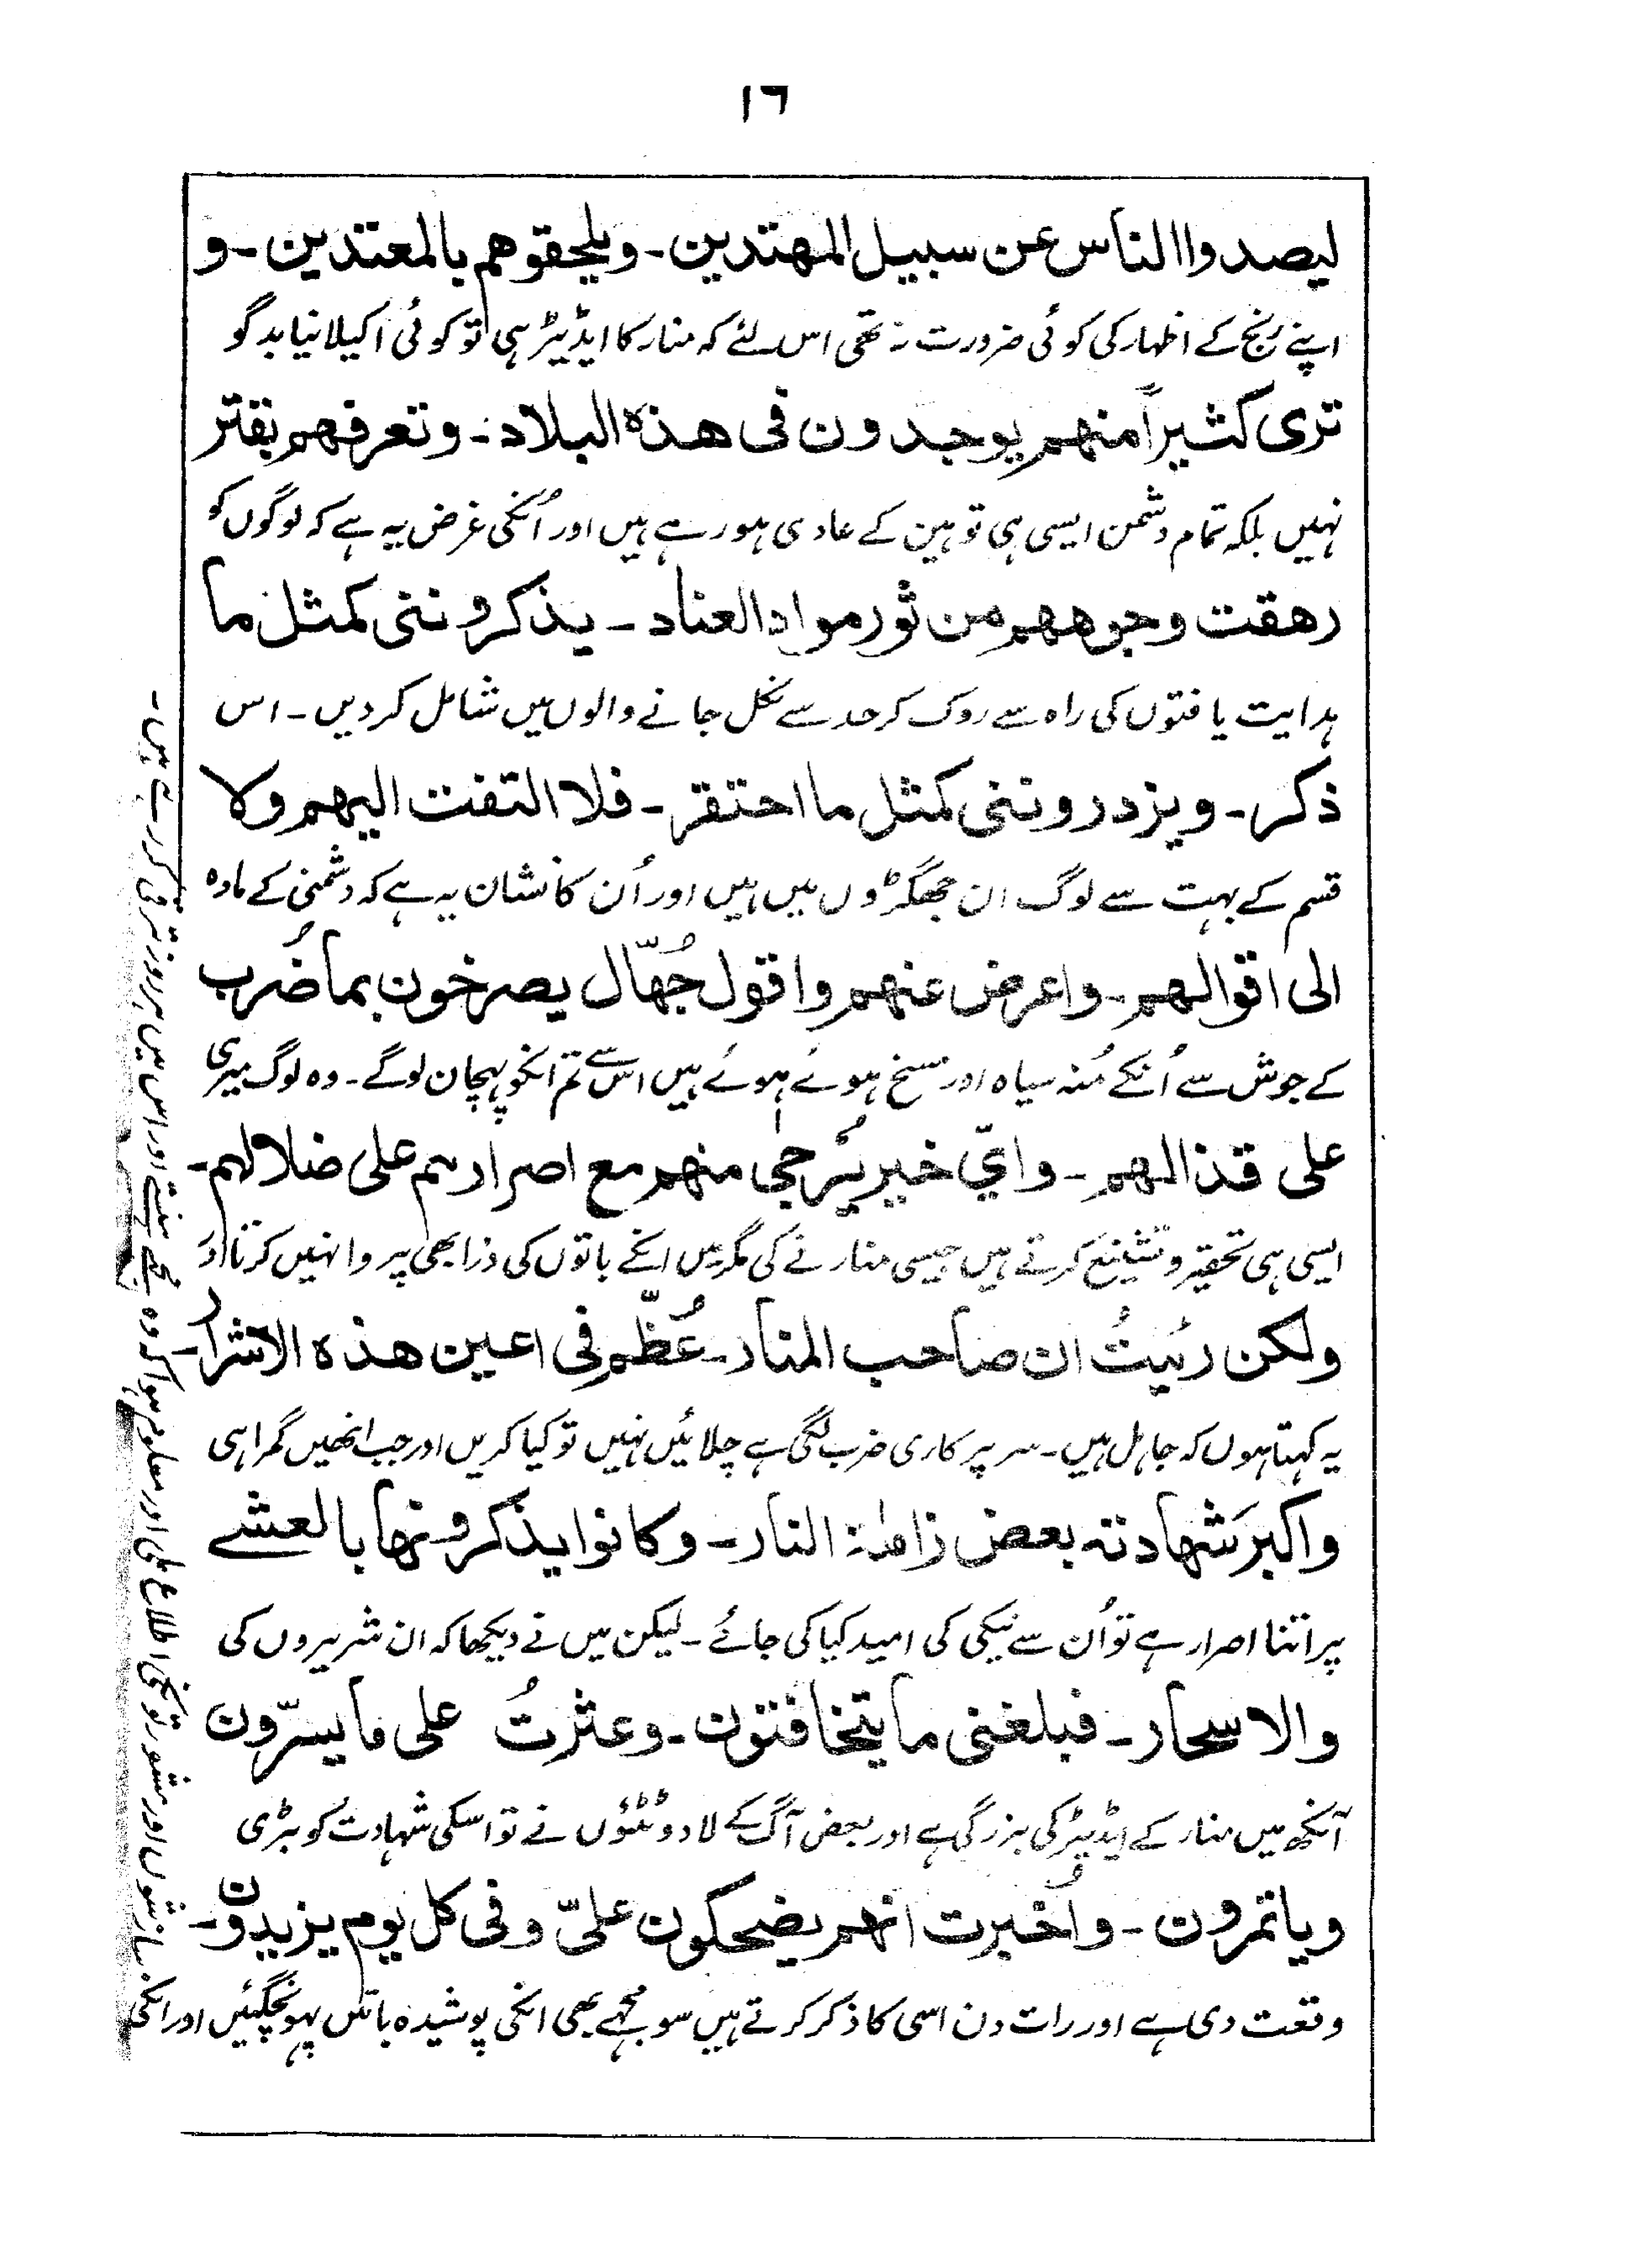 ١٦
ليصدوا الناس عن سبيل المهتدين ۔ ويلحقوهم بالمعتدين ۔ و
اپنے رنج کے اظہار کی کوئی ضرورت نہ تھی اس لئے کہ منار کا ایڈیٹر ہی تو کوئی اکیلا نیا بدگو
ترى كثيراً منهم يوجدون فى هذه البلاد ۔ وتعرفهم بقتر
نہیں بلکہ تمام دشمن ایسی ہی توہین کے عادی ہو رہے ہیں اور اُنکی غرض یہ ہے کہ لوگوں کو
رهقت وجوههم من ثور مواد العناد ۔ يذكروننى كمثل ما
ہدایت یافتوں کی راہ سے روک کر حد سے نکل جانے والوں میں شامل کر دیں ۔ اس
ذكر ۔ ويزدروننى كمثل ما احتقر ۔ فلا التفت اليهم ولا
قسم کے بہت سے لوگ ان جھگڑوں میں ہیں اور اُن کا نشان یہ ہے کہ دشمنی کے مادہ
الى اقوالهم ۔ واعرض عنهم واقول جُهّال يصرخون بما ضُرب
کے جوش سے اُنکے مُنہ سیاہ اور مسخ ہوئے ہوئے ہیں اس سے تم انکو پہچان لوگے ۔ وہ لوگ میری
على قذالهم ۔ وايّ خير يُرجى منهم مع اصرارهم على ضلالهم ۔
ایسی ہی تحقیر و تشنیع کرتے ہیں جیسی منار نے کی مگر میں انکے باتوں کی ذرا بھی پروا نہیں کرتا اور
ولكن رئيتُ ان صاحب المنار ۔ عُظّم فى اعين هذه الاشرار ۔
یہ کہتا ہوں کہ جاہل ہیں ۔ سر پر کاری ضرب لگی ہے چلائیں نہیں تو کیا کریں اور جب انھیں گمراہی
واكبرَ شهادته بعض زاملة النار ۔ وكانوا يذكرونها بالعشے
پر اتنا اصرار ہے تو اُن سے نیکی کی امید کیا کی جائے ۔ لیکن میں نے دیکھا کہ ان شریروں کی
والاسحار ۔ فبلغنى ما يتخافتون ۔ وعثرتُ على ما يسرّون
آنکھ میں منار کے ایڈیٹر کی بزرگی ہے اور بعض آگ کے لادو ٹٹوؤں نے تو اسکی شہادت کو بڑی
وياتمرون ۔ واُخبرت انهم يضحكون علىّ وفى كل يوم يزيدون ۔
وقعت دی ہے اور رات دن اسی کا ذکر کرتے ہیں سو مجھے بھی انکی پوشیدہ باتیں پہونچ گئیں اور انکی
سازشوں اور مشورتوں کی اطلاع ملی اور معلوم ہوا کہ وہ مجھے ہنستے اور اس میں ہر روز ترقی کر رہے ہیں ۔